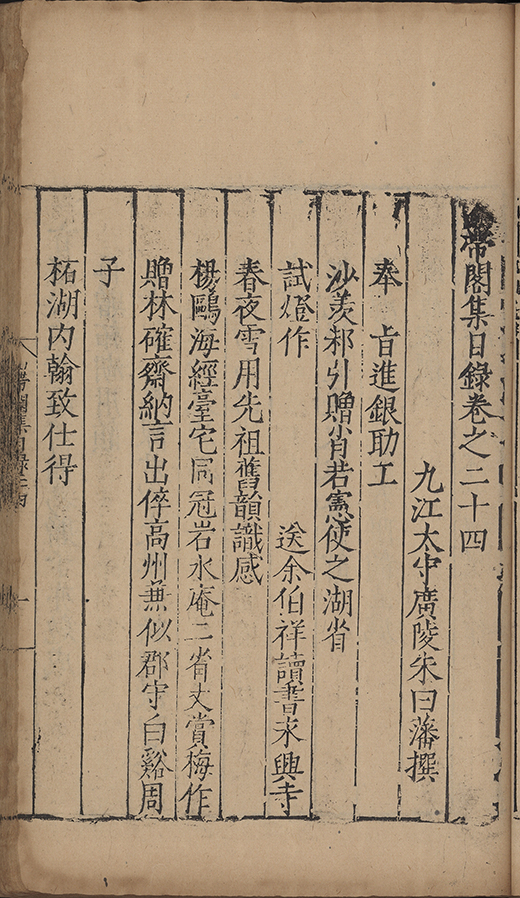 帶閣集目錄卷之二十四
九江太守廣陵朱曰藩撰
奉 旨進銀助工
沙羡邾引贈肖若憲使之湖省
試燈作 送余伯祥讀書永興寺
春夜雪用先祖舊韻識感
楊鷗海經臺宅同冠岩水庵二省丈賞梅作
贈林確齋納言出倅高州兼似郡守白谿周
子
柘湖内翰致仕得